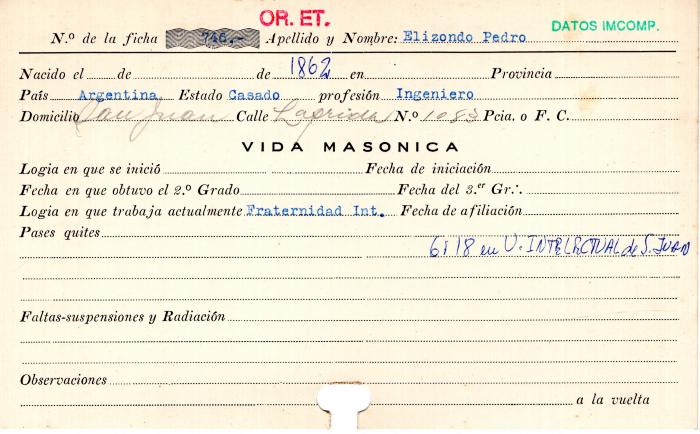 OR. ET.
DATOS IMCOMP.
N.º de la ficha 746.- Apellido y Nombre: Elizondo Pedro
Nacido el de de 1862 en Provincia
País Argentina Estado Casado profesión Ingeniero
Domicilio San Juan Calle Laprida N.º 1083 Pcia. o F. C.
VIDA MASONICA
Logia en que se inició Fecha de iniciación
Fecha en que obtuvo el 2.º Grado Fecha del 3.er Gr∴
Logia en que trabaja actualmente Fraternidad Int. Fecha de afiliación
Pases quites
en U. INTELECTUAL de S. JUAN
Faltas-suspensiones y Radiación
Observaciones
a la vuelta